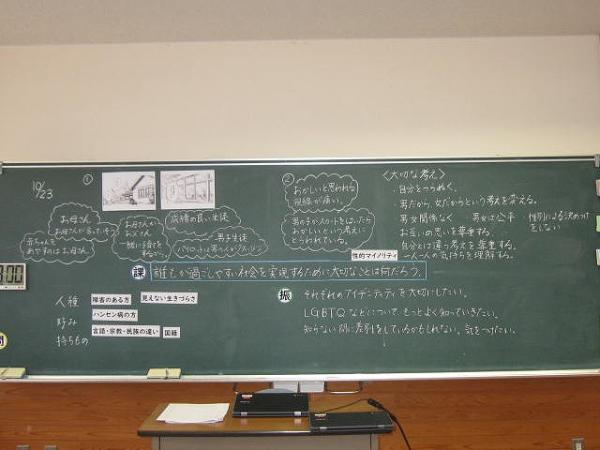 10/23
①
お母さん
お母さんが
赤ちゃんを
お母さん
お母さんが
お父さん
一緒に
成績の良い生徒
男子生徒
②
おかしいと思われる
視線が痛い。
男の子がスカートをはいたら
おかしいという考えに
とらわれている。
〈大切な考え〉
・自分をつらぬく。
・男だから、女だからという考えを変える。
・男女関係なく ・男女は公平 ・性別による決めつけ
をしない
・お互いの思いを尊重する。
・自分とは違う考えを尊重する。
・一人一人の気持ちを理解する。
性的マイノリティ
課 誰もが過ごしやすい社会を実現するために大切なことは何だろう。
:00
人種
障害のある方
見えない生きづらさ
好み
ハンセン病の方
持ちもの
言語・宗教・民族の違い
国籍
振 それぞれのアイデンティティを大切にしたい。
LGBTQなどについて、もっとよく知っていきたい。
知らない間に差別をしているかもしれない。気をつけたい。